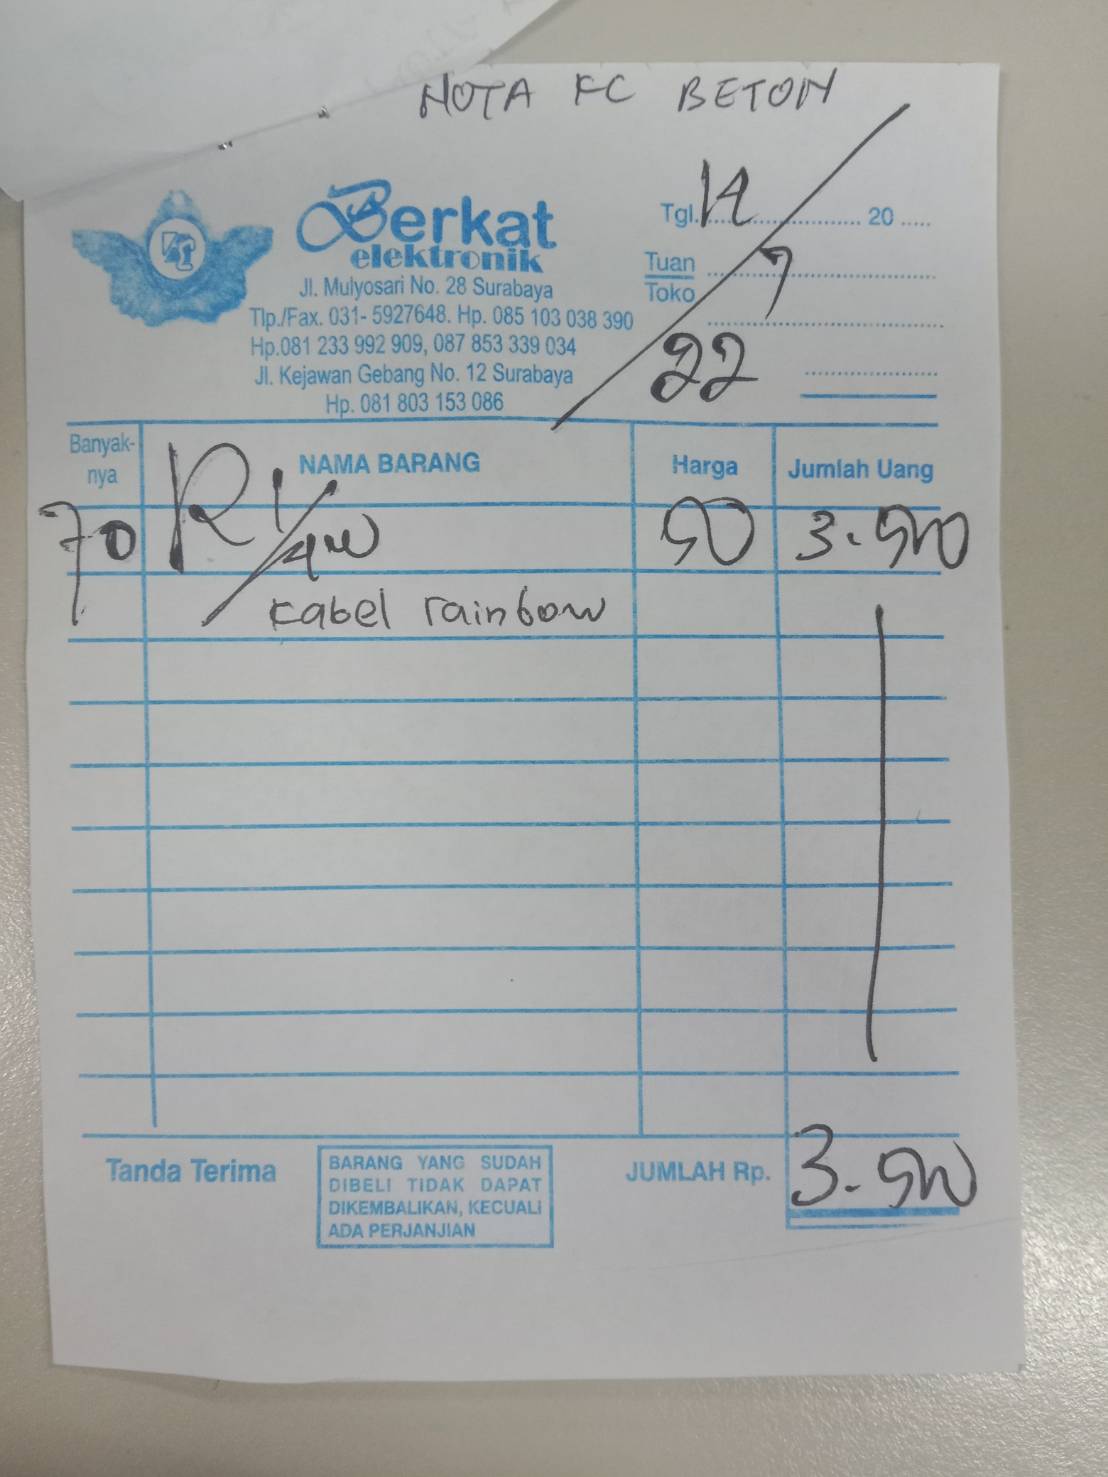 NOTA FC BETON
Berkat
elektronik
Jl. Mulyosari No. 28 Surabaya
Tlp./Fax. 031- 5927648. Hp. 085 103 038 390
Hp.081 233 992 909, 087 853 339 034
Jl. Kejawan Gebang No. 12 Surabaya
Hp. 081 803 153 086
Tgl. 14 20
Tuan 7
Toko
22
Banyak-
nya NAMA BARANG Harga Jumlah Uang
70 R 1/4W 50 3.500
kabel rainbow
Tanda Terima
BARANG YANG SUDAH
DIBELI TIDAK DAPAT
DIKEMBALIKAN, KECUALI
ADA PERJANJIAN
JUMLAH Rp. 3.500